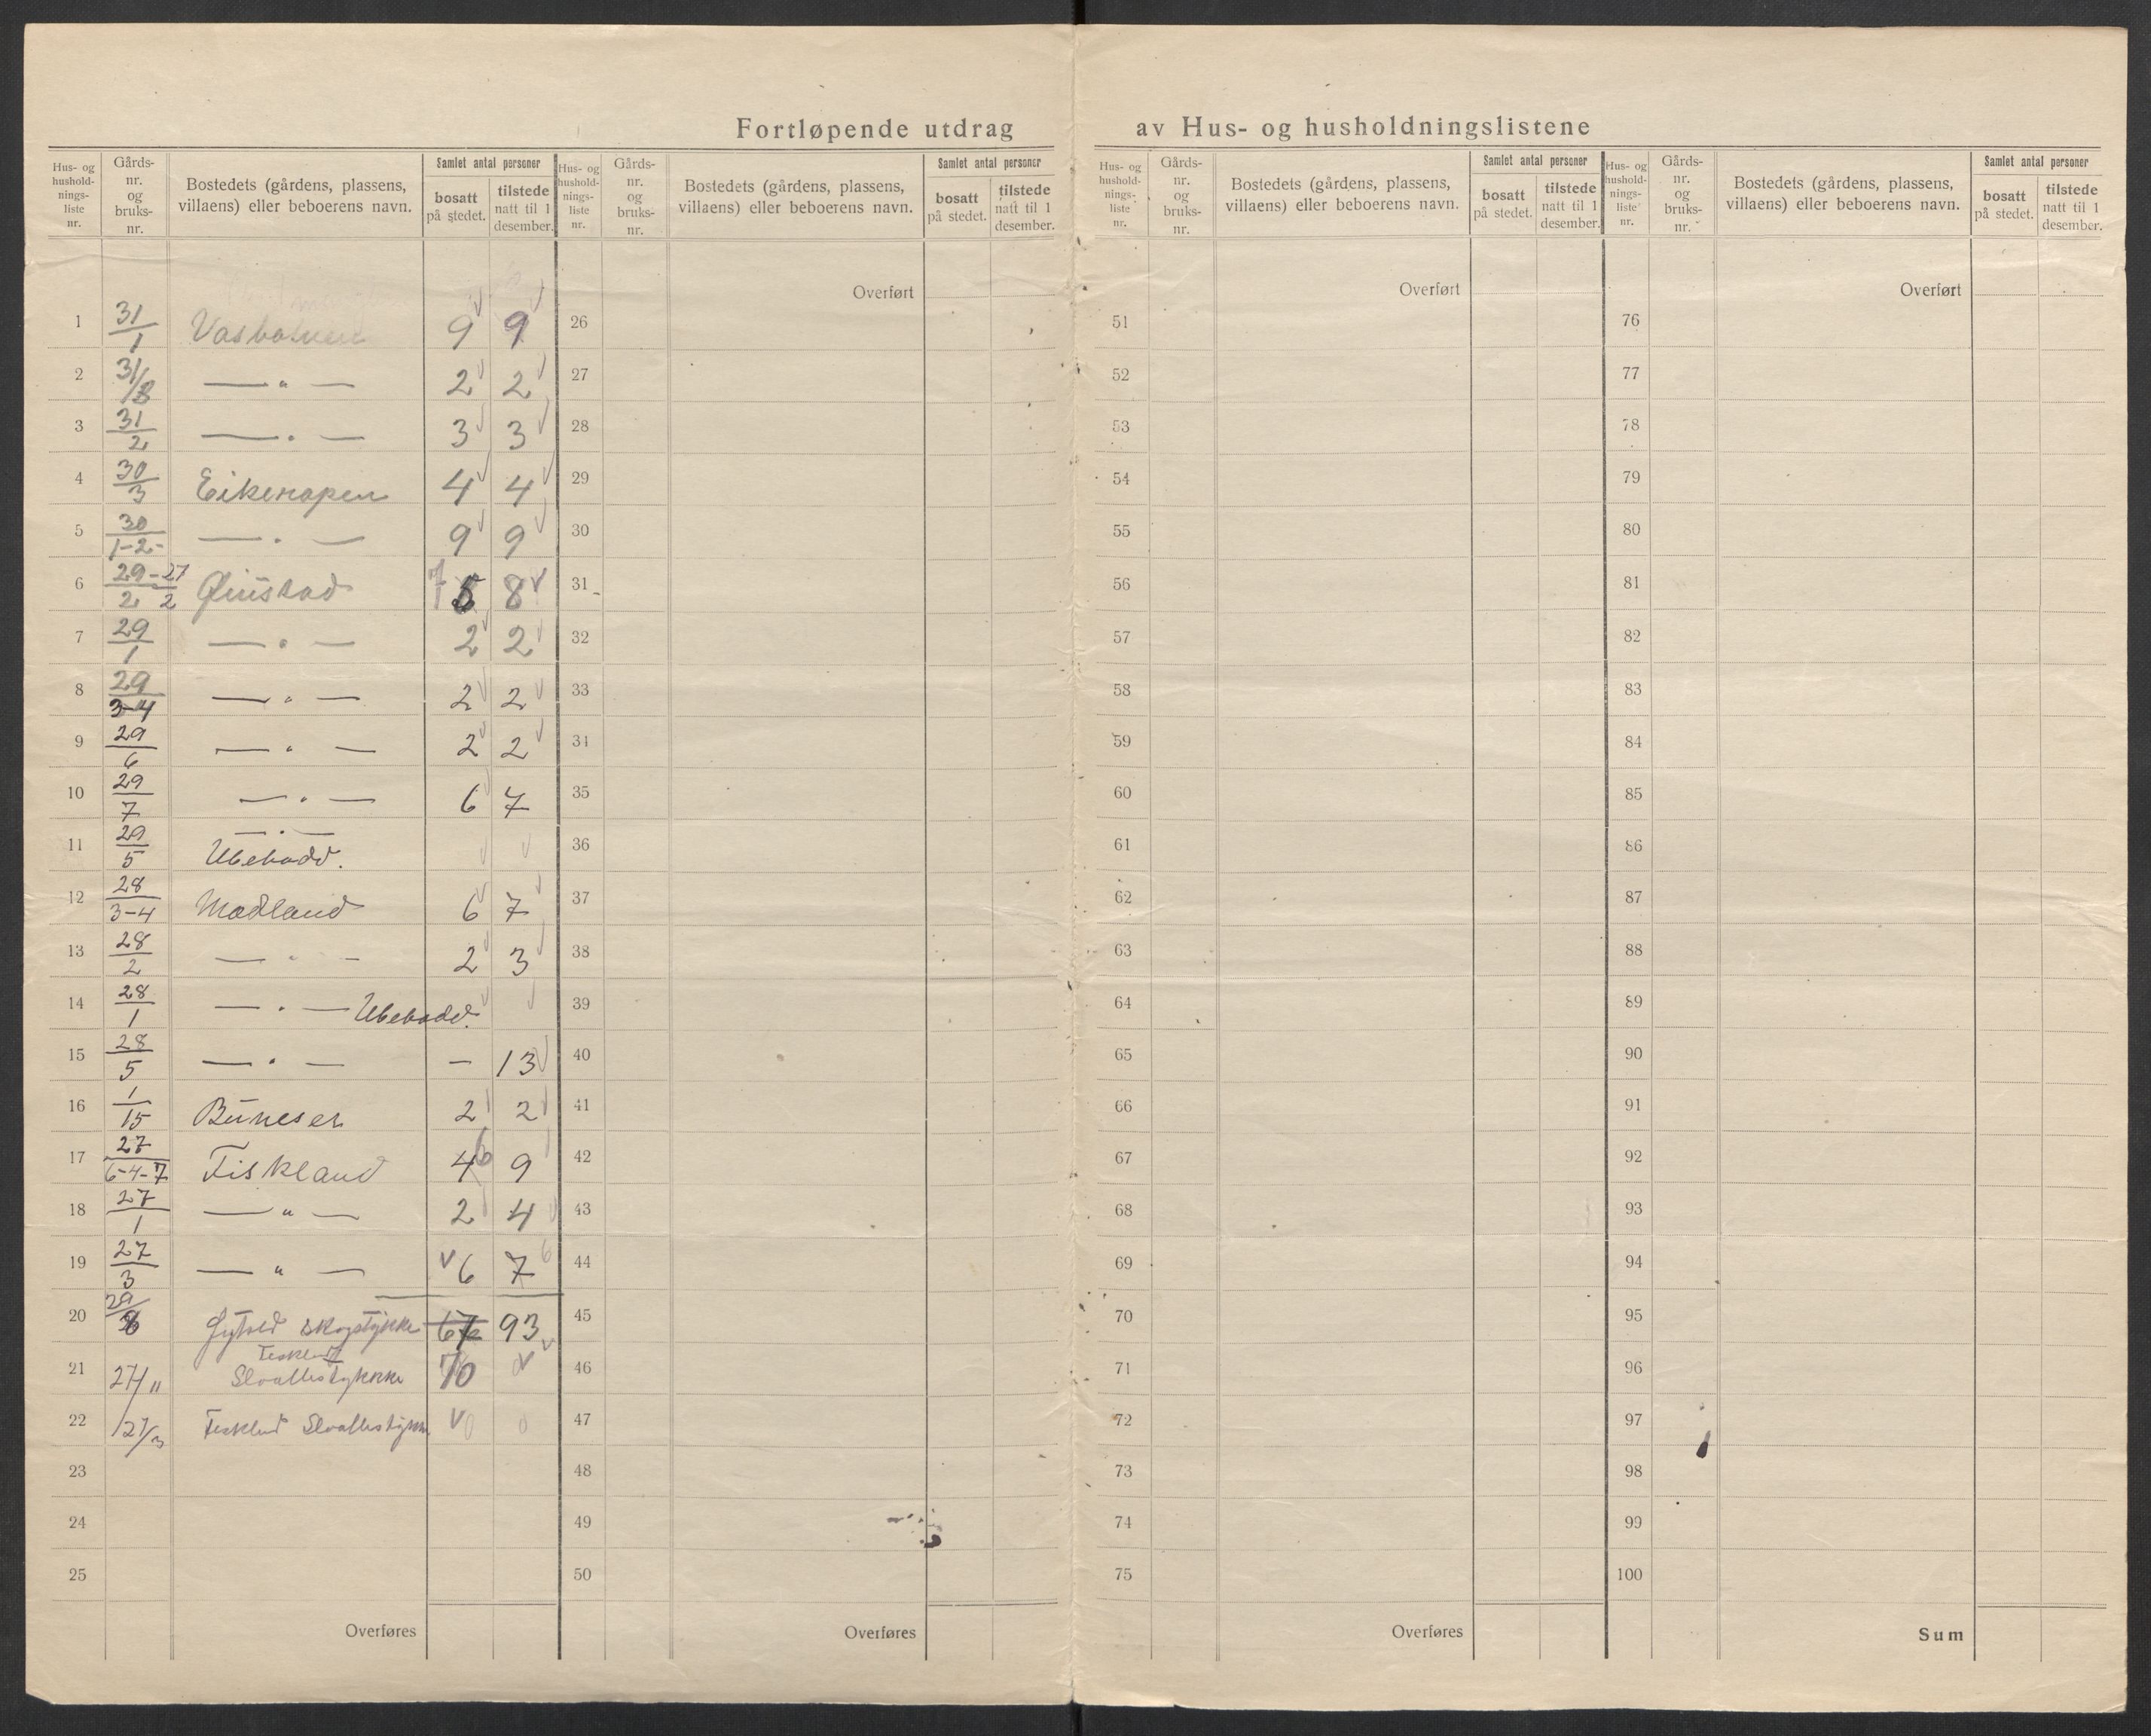 Fortløpende utdrag av Hus- og husholdningslistene
Hus- og hushold- nings- liste nr.
Gårds- nr. og bruks- nr.
Bostedets (gårdens, plassens, villaens) eller beboerens navn.
Samlet antal personer
bosatt på stedet.
tilstede natt til 1 desember.
Hus- og hushold- nings- liste nr.
Gårds- nr. og bruks- nr.
Bostedets (gårdens, plassens, villaens) eller beboerens navn.
Samlet antal personer
bosatt på stedet.
tilstede natt til 1 desember.
Hus- og hushold- nings- liste nr.
Gårds- nr. og bruks- nr.
Bostedets (gårdens, plassens, villaens) eller beboerens navn.
Samlet antal personer
bosatt på stedet.
tilstede natt til 1 desember.
Hus- og hushold- nings- liste nr.
Gårds- nr. og bruks- nr.
Bostedets (gårdens, plassens, villaens) eller beboerens navn.
Samlet antal personer
bosatt på stedet.
tilstede natt til 1 desember.
Overført Overført Overført
1 31/1 9 9 26 51 76
2 31/8 — " — 2 2 27 52 77
3 31/2 — " — 3 3 28 53 78
4 30/3 Eikerapen 4 4 29 54 79
5 30/1-2- — " — 9 9 30 55 80
6 29/2 - 27/2 Øiustad 7 8 31 56 81
7 29/1 — " — 2 2 32 57 82
8 29/3-4 — " — 2 2 33 58 83
9 29/6 — " — 2 2 34 59 84
10 29/7 — " — 6 7 35 60 85
11 29/5 — " — Ubebodd. 36 61 86
12 28/3-4 Madland 6 7 37 62 87
13 28/2 — " — 2 3 38 63 88
14 28/1 — " — Ubebodd. 39 64 89
15 28/5 — " — - 13 40 65 90
16 1/15 Buneser 2 2 41 66 91
17 27/6-4-7 Fiskland 4 6 9 42 67 92
18 27/1 — " — 2 4 43 68 93
19 27/3 — " — 6 7 6 44 69 94
20 29/8 skogstykke 67 93 45 70 95
21 27/11 70 46 71 96
22 27/3 0 0 47 72 97
23 48 73 98
24 49 74 99
25 50 75 100
Overføres Overføres Overføres Sum